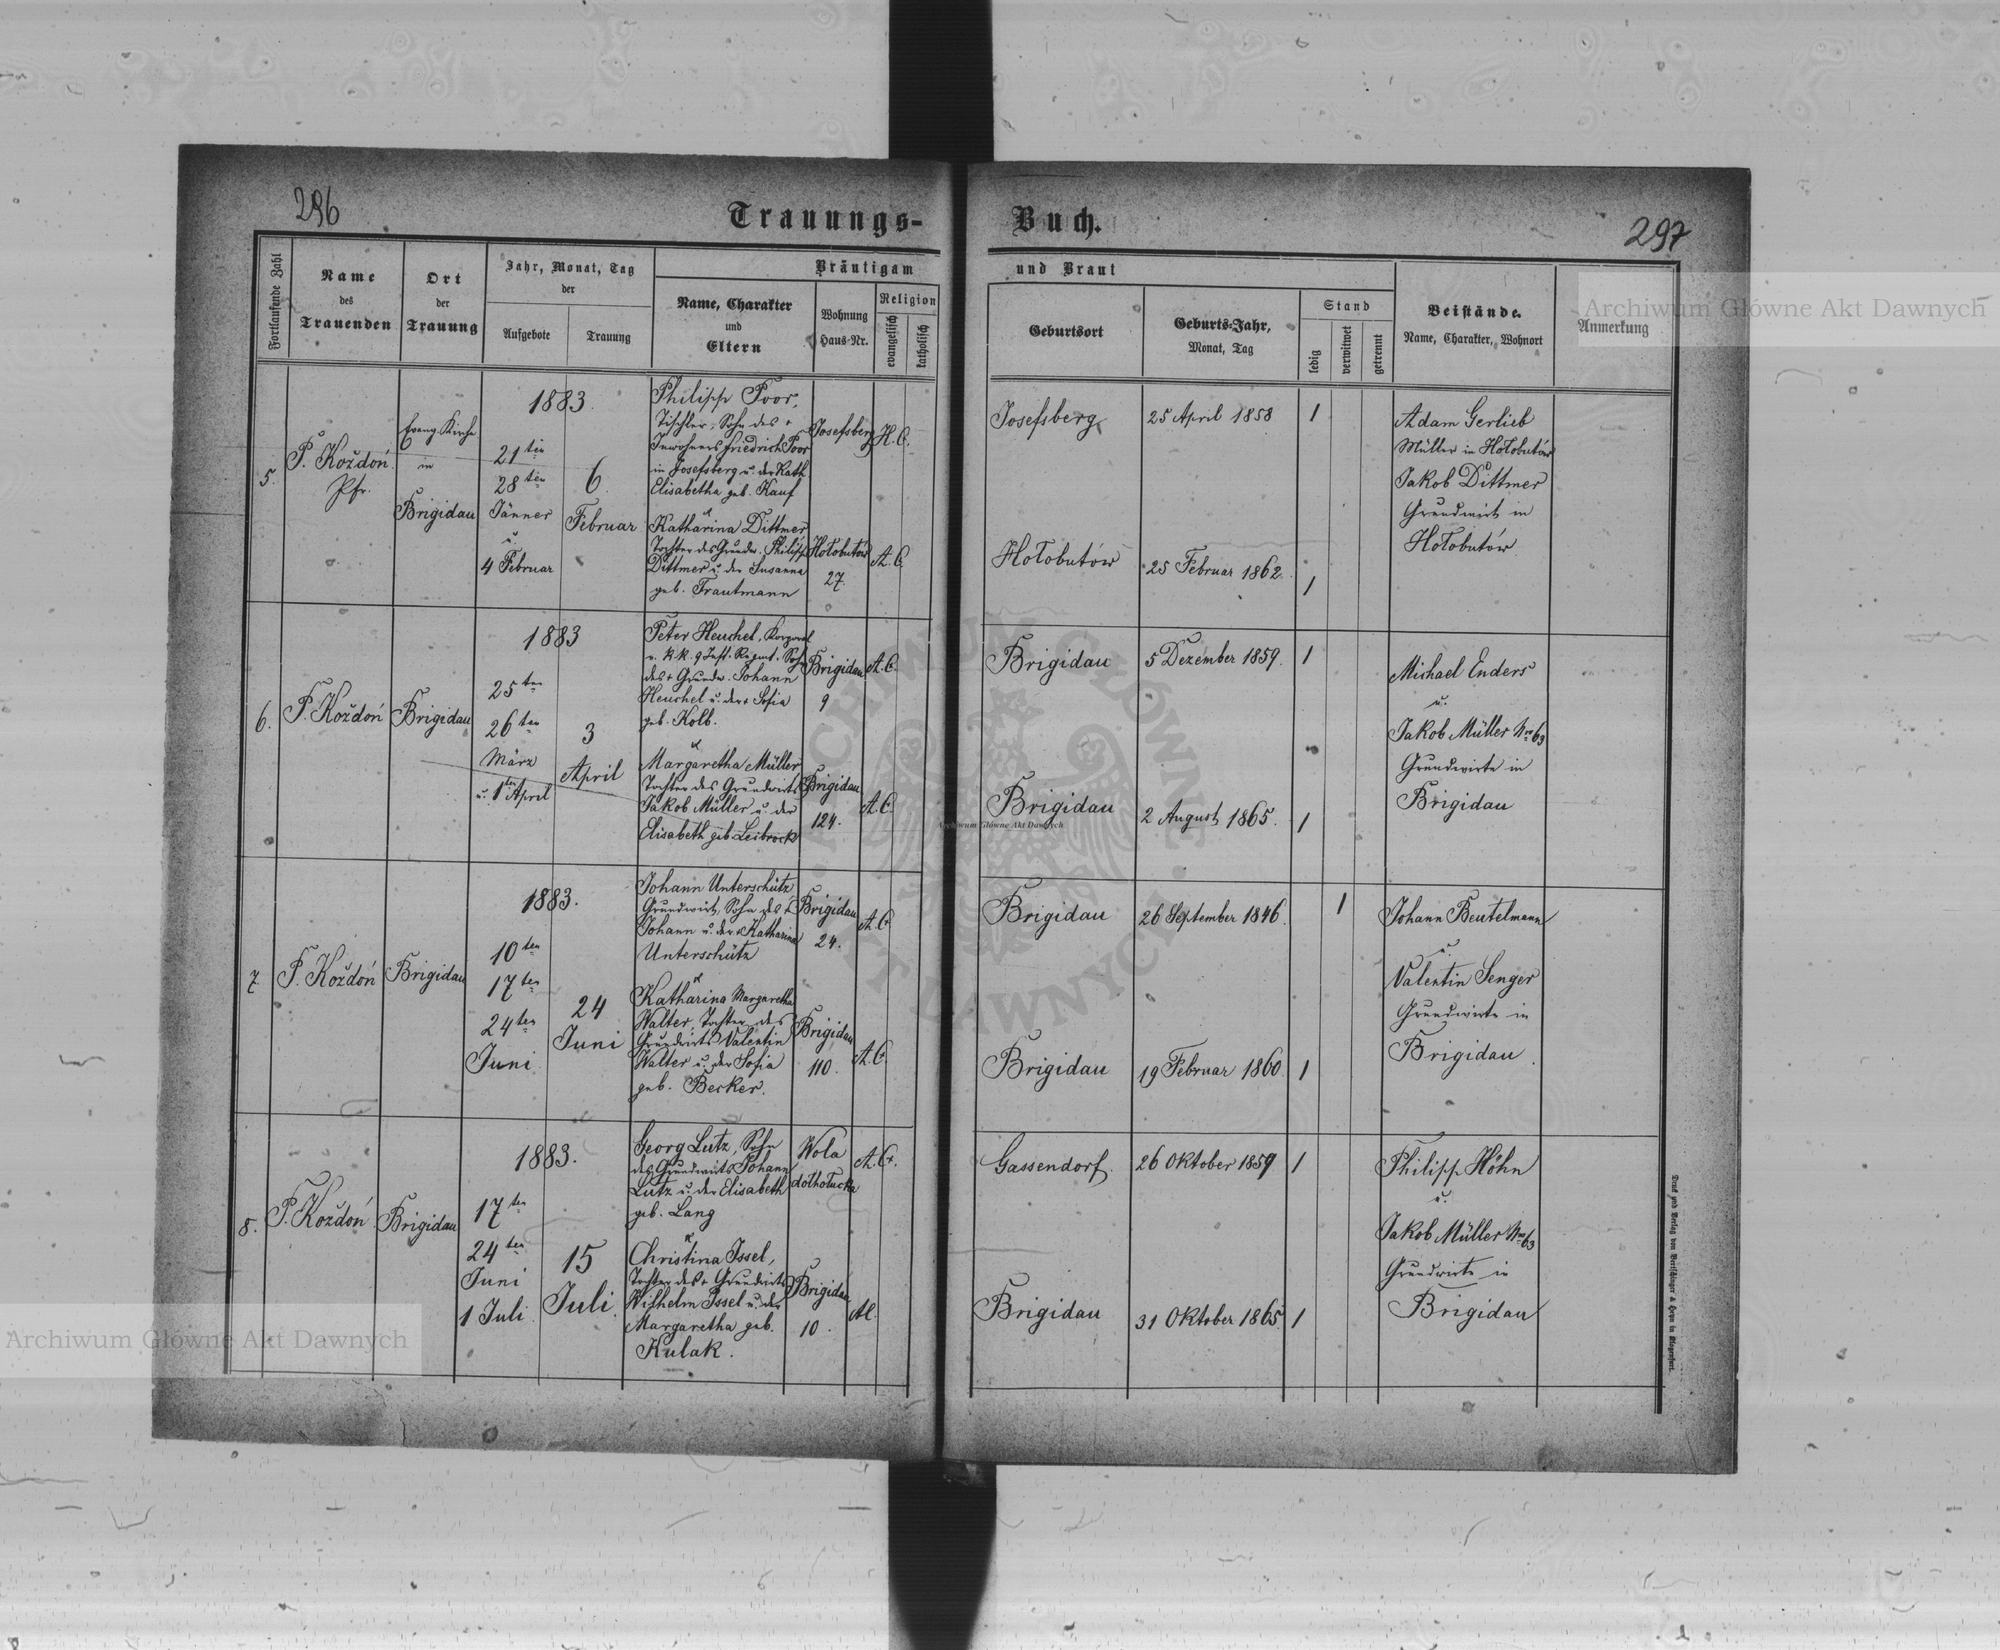 296
Trauungs-
Buch.
297
Fortlaufende Zahl
Name
des
Trauenden
Ort
der
Trauung
Jahr, Monat, Tag
der
Aufgebote
Trauung
Bräutigam
Name, Charakter
und
Eltern
Wohnung
Haus-Nr.
Religion
evangelisch
katholisch
und Braut
Geburtsort
Geburts-Jahr,
Monat, Tag
Stand
ledig
verwitwet
getrennt
Beistände.
Name, Charakter, Wohnort
Anmerkung
5.
P. Koždoń
Pfr.
Evang. Kirche
in
Brigidau
1883.
21ten
28ten
Jänner
u.
4 Februar
6
Februar
Philipp Poor,
Tischler, Sohn des +
Inwohners Friedrich Poor
in Josefsberg u. der Kath.
Elisabetha geb. Kauf
u
Katharina Dittmer
Tochter des Grundw. Philipp
Dittmer u. der Susanna
geb. Trautmann
Josefsberg
H. C.
Hołobutów
27.
A. C.
Josefsberg
25 April 1858
1
Hołobutów
25 Februar 1862.
1
Adam Gerlieb
Müller in Hołobutów
Jakob Dittmer
Grundwirt in
Hołobutów
6.
P. Koždoń
Brigidau
1883
25ten
26ten
März
u. 1ten April
3
April
Peter Heuchel, Korporal
v. k. k. 9 Inft. Regmt. Sohn
des + Grundw. Johann
Heuchel u. der + Sofia
geb. Kolb.
u
Margaretha Müller
Tochter des Grundwirts
Jakob Müller u. der
Elisabeth geb. Leibrock
Brigidau
9
A. C.
Brigidau
124.
A. C.
Brigidau
5 Dezember 1859.
1
Brigidau
2 August 1865.
1
Michael Enders
u.
Jakob Müller No 63
Grundwirte in
Brigidau
7.
P. Koždoń
Brigidau
1883.
10ten
17ten
24ten
Juni
24
Juni
Johann Unterschütz
Grundwirt, Sohn des +
Johann u. der + Katharina
Unterschütz
u
Katharina Margaretha
Walter, Tochter des
Grundwirts Valentin
Walter u. der Sofia
geb. Becker.
Brigidau
24.
A. C.
Brigidau
110.
A. C.
Brigidau
26 September 1846.
1
Brigidau
19 Februar 1860.
1
Johann Beutelmann
u.
Valentin Senger
Grundwirte in
Brigidau.
8.
P. Koždoń
Brigidau
1883.
17ten
24ten
Juni
1 Juli.
15
Juli.
Georg Lutz, Sohn
des Grundwirts Johann
Lutz u. der Elisabeth
geb. Lang
u
Christina Issel,
Tochter des + Grundwirts
Wilhelm Issel u. der
Margaretha geb.
Kulak.
Wola
dołhołucka
A. C.
Brigidau
10.
Gassendorf.
26 Oktober 1859
1
Brigidau
31 Oktober 1865.
1
Philipp Höhn
u.
Jakob Müller No 63
Grundwirte in
Brigidau
Druck und Verlag von Bertschinger & Heyn in Klagenfurt.
Archiwum Główne Akt Dawnych
Archiwum Główne Akt Dawnych
Archiwum Główne Akt Dawnych
ARCHIWUM GŁÓWNE AKT DAWNYCH